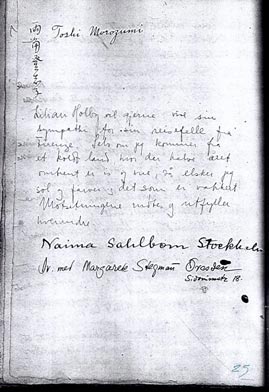 Toshi Morozumi
両角登志子
Lilian Holby vil gjerne vise sin
sympathi for sin reisefelle fra
Selv om jeg kommer fra
et koldt land hvor det halve året
omtrent er is og sne, så elsker jeg
sol og farver og det som er vakkert
Motsetningene møtes og utfyller
hverandre
Naima Sahlbom Stockholm
Dr. med Margarete Stegman Dresden
Sidonienstr 18.
25